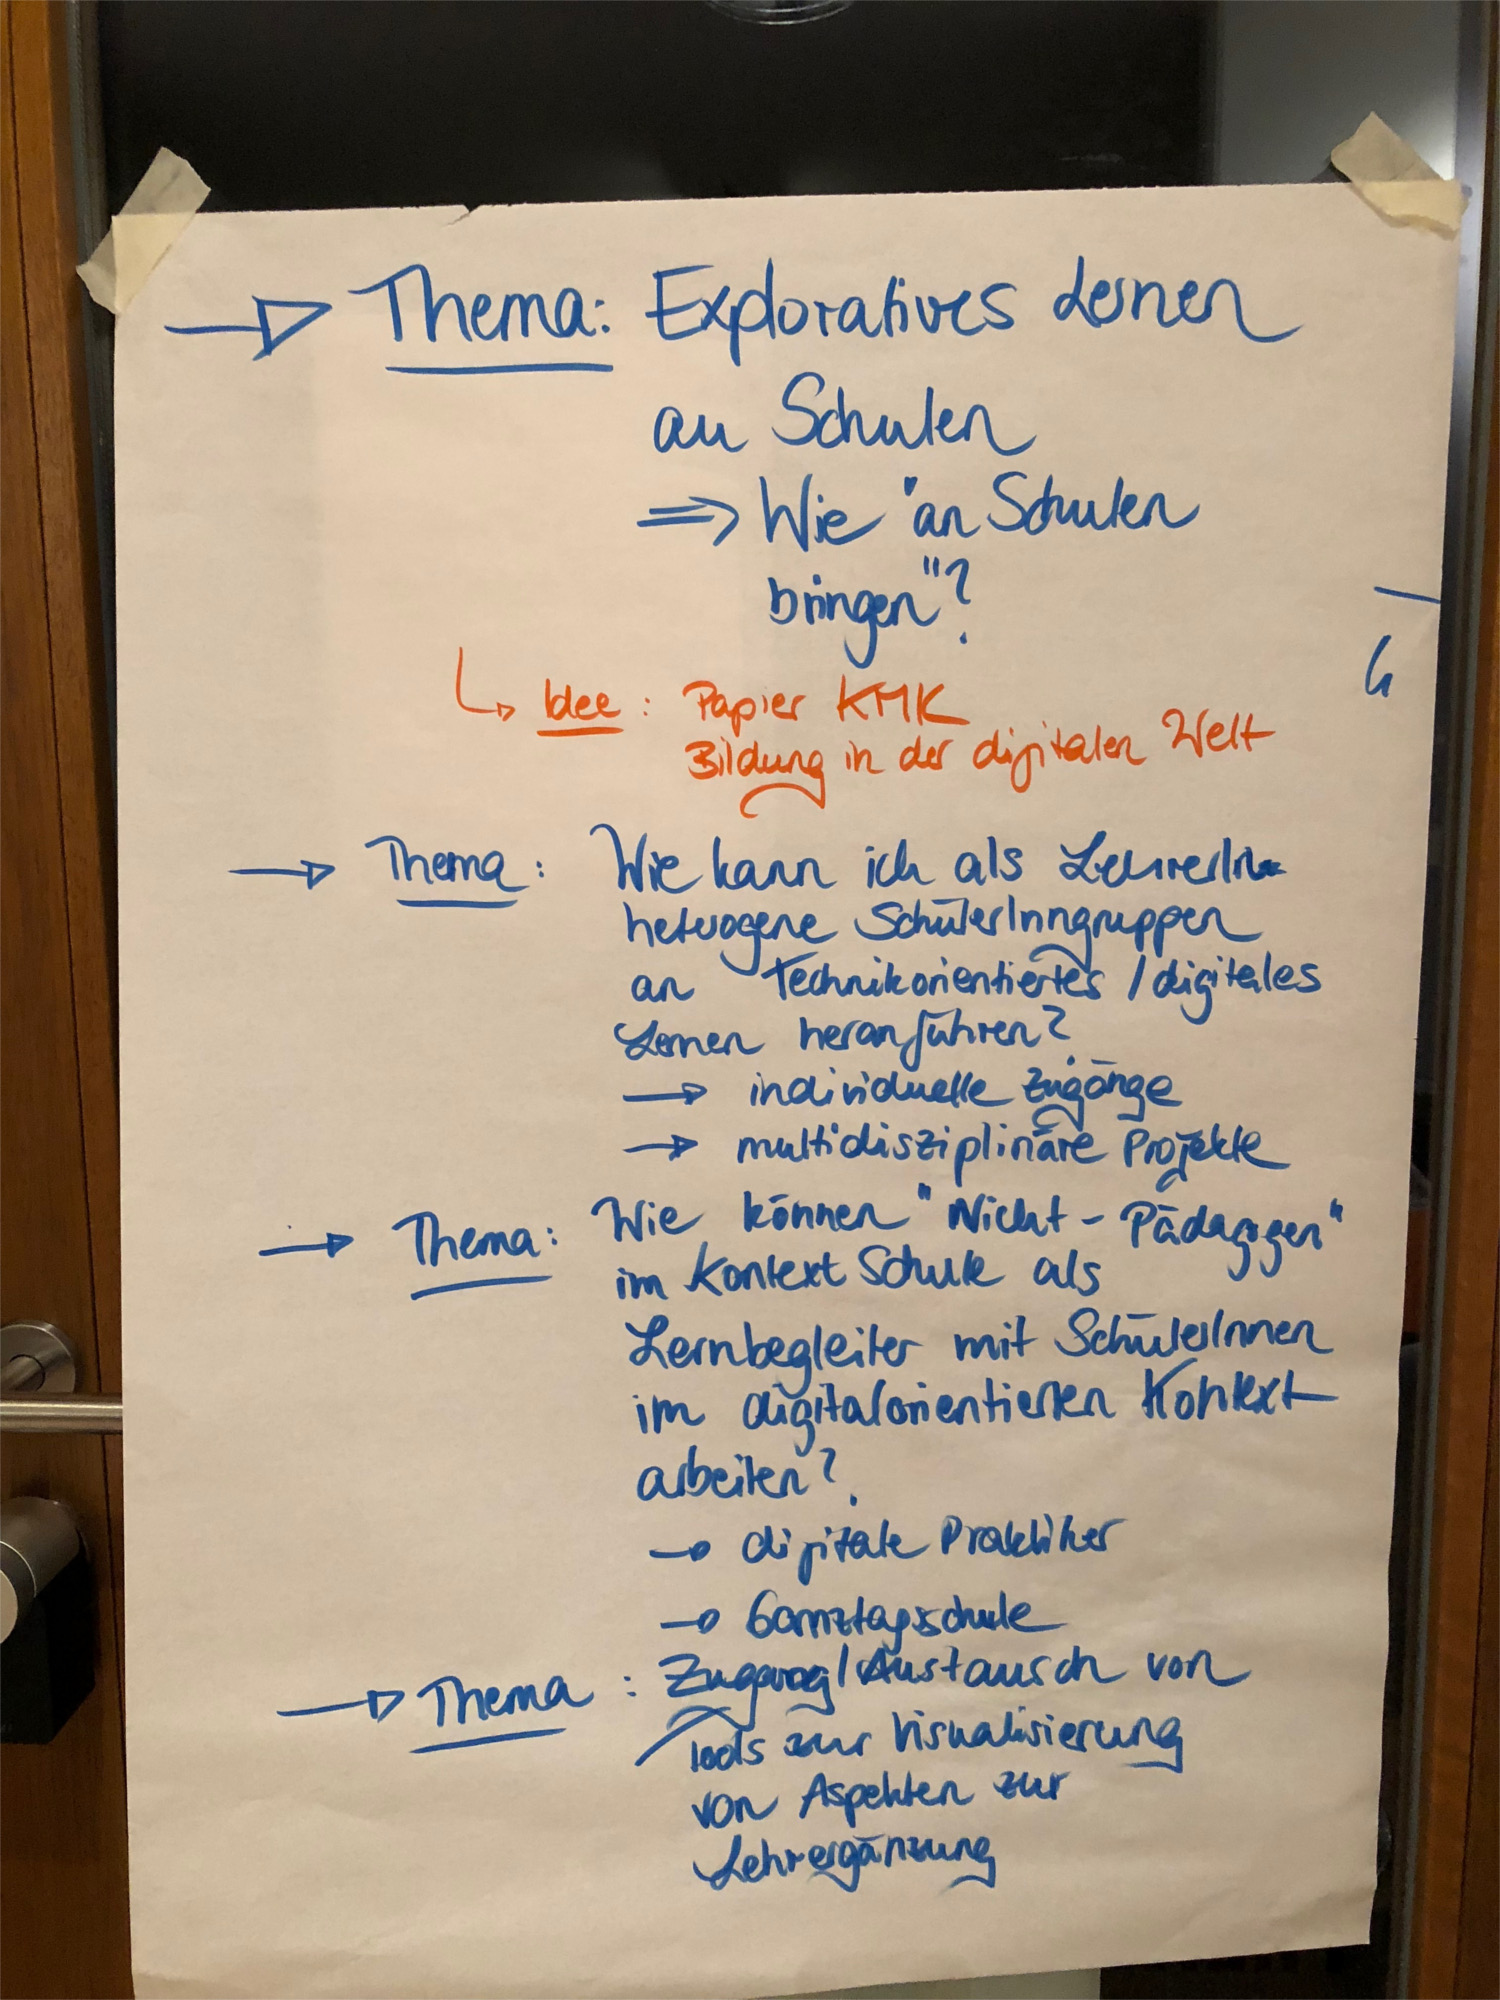 → Thema: Exploratives Lernen
an Schulen
⇒ Wie "an Schulen
bringen"?
↳ Idee: Papier KMK
Bildung in der digitalen Welt
→ Thema: Wie kann ich als LehrerIn
heterogene SchülerInngruppen
an Technikorientiertes / digitales
Lernen heranführen?
→ individuelle Zugänge
→ multidisziplinäre Projekte
→ Thema: Wie können "Nicht-Pädagogen"
im Kontext Schule als
Lernbegleiter mit SchülerInnen
im digitalorientierten Kontext
arbeiten?
→ digitale Praktiker
→ Ganztagsschule
→ Thema: Zugang/Austausch von
Tools zur Visualisierung
von Aspekten zur
Lehrergänzung